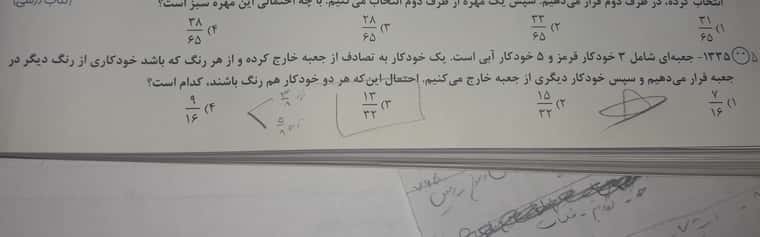 انتخاب کرده، در ظرف دوم قرار می‌دهیم. سپس یک مهره از ظرف دوم انتخاب می‌کنیم. با چه احتمالی این مهره سبز است؟
۱) ۳۱/۶۵ ۲) ۳۳/۶۵ ۳) ۲۸/۶۵ ۴) ۳۸/۶۵
۱۳۳۵- جعبه‌ای شامل ۳ خودکار قرمز و ۵ خودکار آبی است. یک خودکار به تصادف از جعبه خارج کرده و از هر رنگ که باشد خودکاری از رنگ دیگر در
جعبه قرار می‌دهیم و سپس خودکار دیگری از جعبه خارج می‌کنیم. احتمال این‌که هر دو خودکار هم رنگ باشند، کدام است؟
۱) ۷/۱۶ ۲) ۱۵/۳۲ ۳) ۱۳/۳۲ ۴) ۹/۱۶
۳/۸
۵/۸